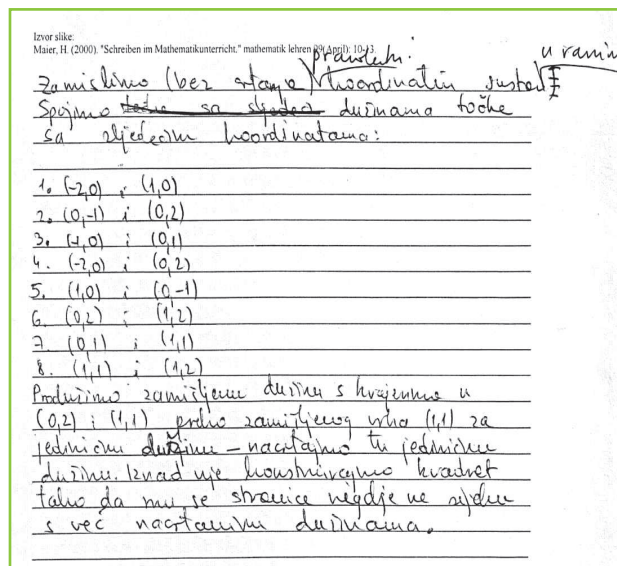 Izvor slike:
Maier, H. (2000). "Schreiben im Mathematikunterricht." mathematik lehren 99(April): 10-13.
pravokutni u ravnini
Zamislimo (bez crtanja) koordinatni sustav
Spojimo dužinama točke
sa sljedećim koordinatama:
1. (-2,0) i (1,0)
2. (0,-1) i (0,2)
3. (-1,0) i (0,1)
4. (-2,0) i (0,2)
5. (1,0) i (0,-1)
6. (0,2) i (1,2)
7. (0,1) i (1,1)
8. (1,1) i (1,2)
Produžimo zamišljenu dužinu s krajevima u
(0,2) i (1,1) preko zamišljenog vrha (1,1) za
jediničnu dužinu – nacrtajmo tu jediničnu
dužinu. Iznad nje konstruirajmo kvadrat
tako da mu se stranice nigdje ne sijeku
s već nacrtanim dužinama.